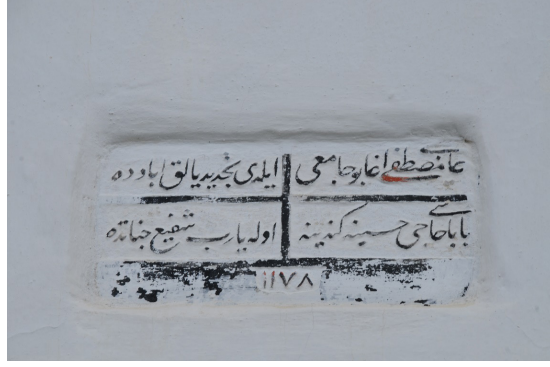 مصطفى اغا بو جامعى ايلدى تجديد يالق اباد ده
باباسى حاجى حسينه كندينه اوله يارب شفيع جنانده
١١٧٨